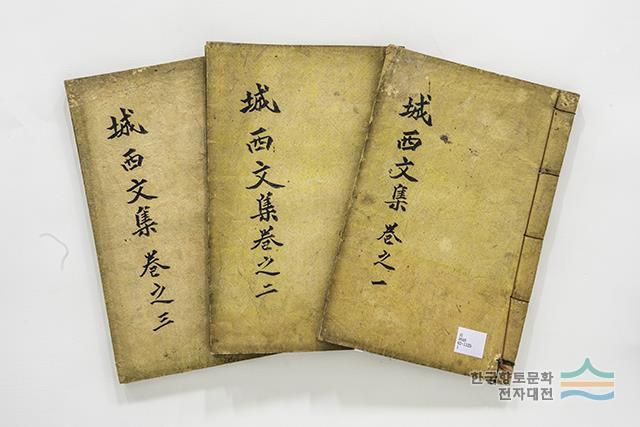 城西文集 卷之三
城西文集卷之二
城西文集 卷之一
한국향토문화
전자대전